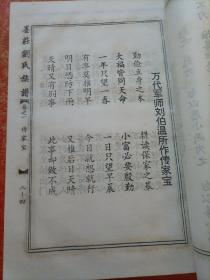 万代军师刘伯温所作传家宝
勤俭立身之本　耕读保家之基
大福皆因天命　小富必要殷勤
一年只望一春　一日只望早晨
有事莫推明早　今日就想就行
明日恐防下雨　又推后日天晴
天晴又有别事　此事却做不成
墨莊劉氏族譜　卷之一　传家宝　八十四